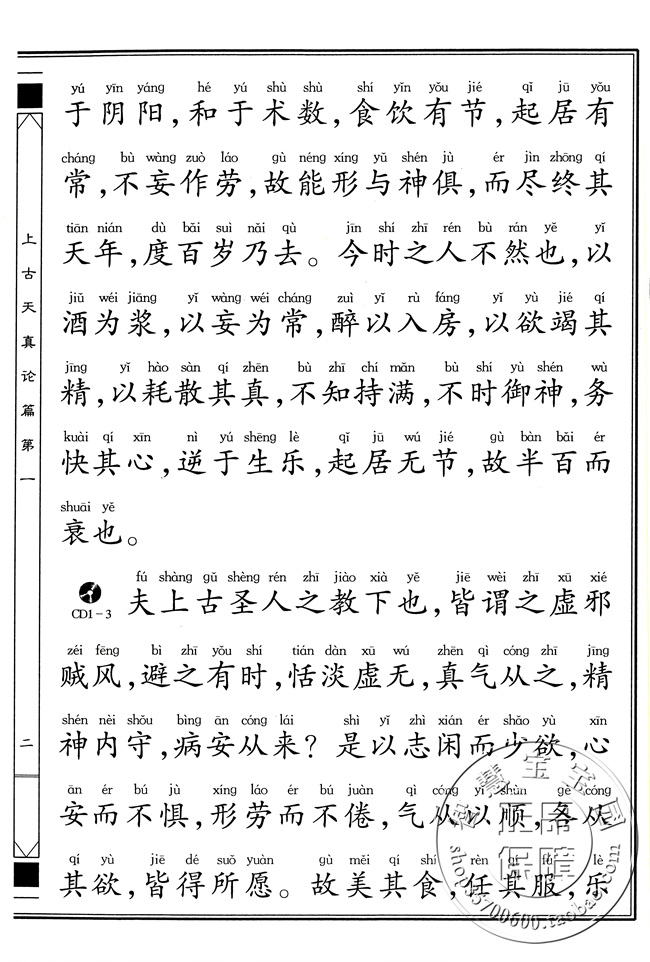 yú yīn yáng hé yú shù shù shí yǐn yǒu jié qǐ jū yǒu
于阴阳,和于术数,食饮有节,起居有
cháng bù wàng zuò láo gù néng xíng yǔ shén jù ér jìn zhōng qí
常,不妄作劳,故能形与神俱,而尽终其
tiān nián dù bǎi suì nǎi qù jīn shí zhī rén bù rán yě yǐ
天年,度百岁乃去。今时之人不然也,以
jiǔ wéi jiāng yǐ wàng wéi cháng zuì yǐ rù fáng yǐ yù jié qí
酒为浆,以妄为常,醉以入房,以欲竭其
jīng yǐ hào sàn qí zhēn bù zhī chí mǎn bù shí yù shén wù
精,以耗散其真,不知持满,不时御神,务
kuài qí xīn nì yú shēng lè qǐ jū wú jié gù bàn bǎi ér
快其心,逆于生乐,起居无节,故半百而
shuāi yě
衰也。
fú shàng gǔ shèng rén zhī jiào xià yě jiē wèi zhī xū xié
CD1-3 夫上古圣人之教下也,皆谓之虚邪
zéi fēng bì zhī yǒu shí tián dàn xū wú zhēn qì cóng zhī jīng
贼风,避之有时,恬淡虚无,真气从之,精
shén nèi shǒu bìng ān cóng lái shì yǐ zhì xián ér shǎo yù xīn
神内守,病安从来?是以志闲而少欲,心
ān ér bú jù xíng láo ér bú juàn qì cóng yǐ shùn gè cóng
安而不惧,形劳而不倦,气从以顺,各从
qí yù jiē dé suǒ yuàn gù měi qí shí rèn qí fú lè
其欲,皆得所愿。故美其食,任其服,乐
上古天真论篇第一
二
智慧宝宝园
正品
保障
shop35700600.taobao.com